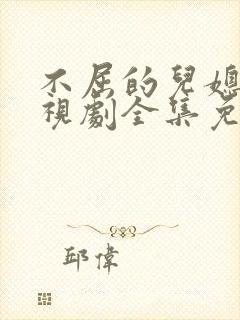 不屈的兒媳
視劇全集免
邱偉